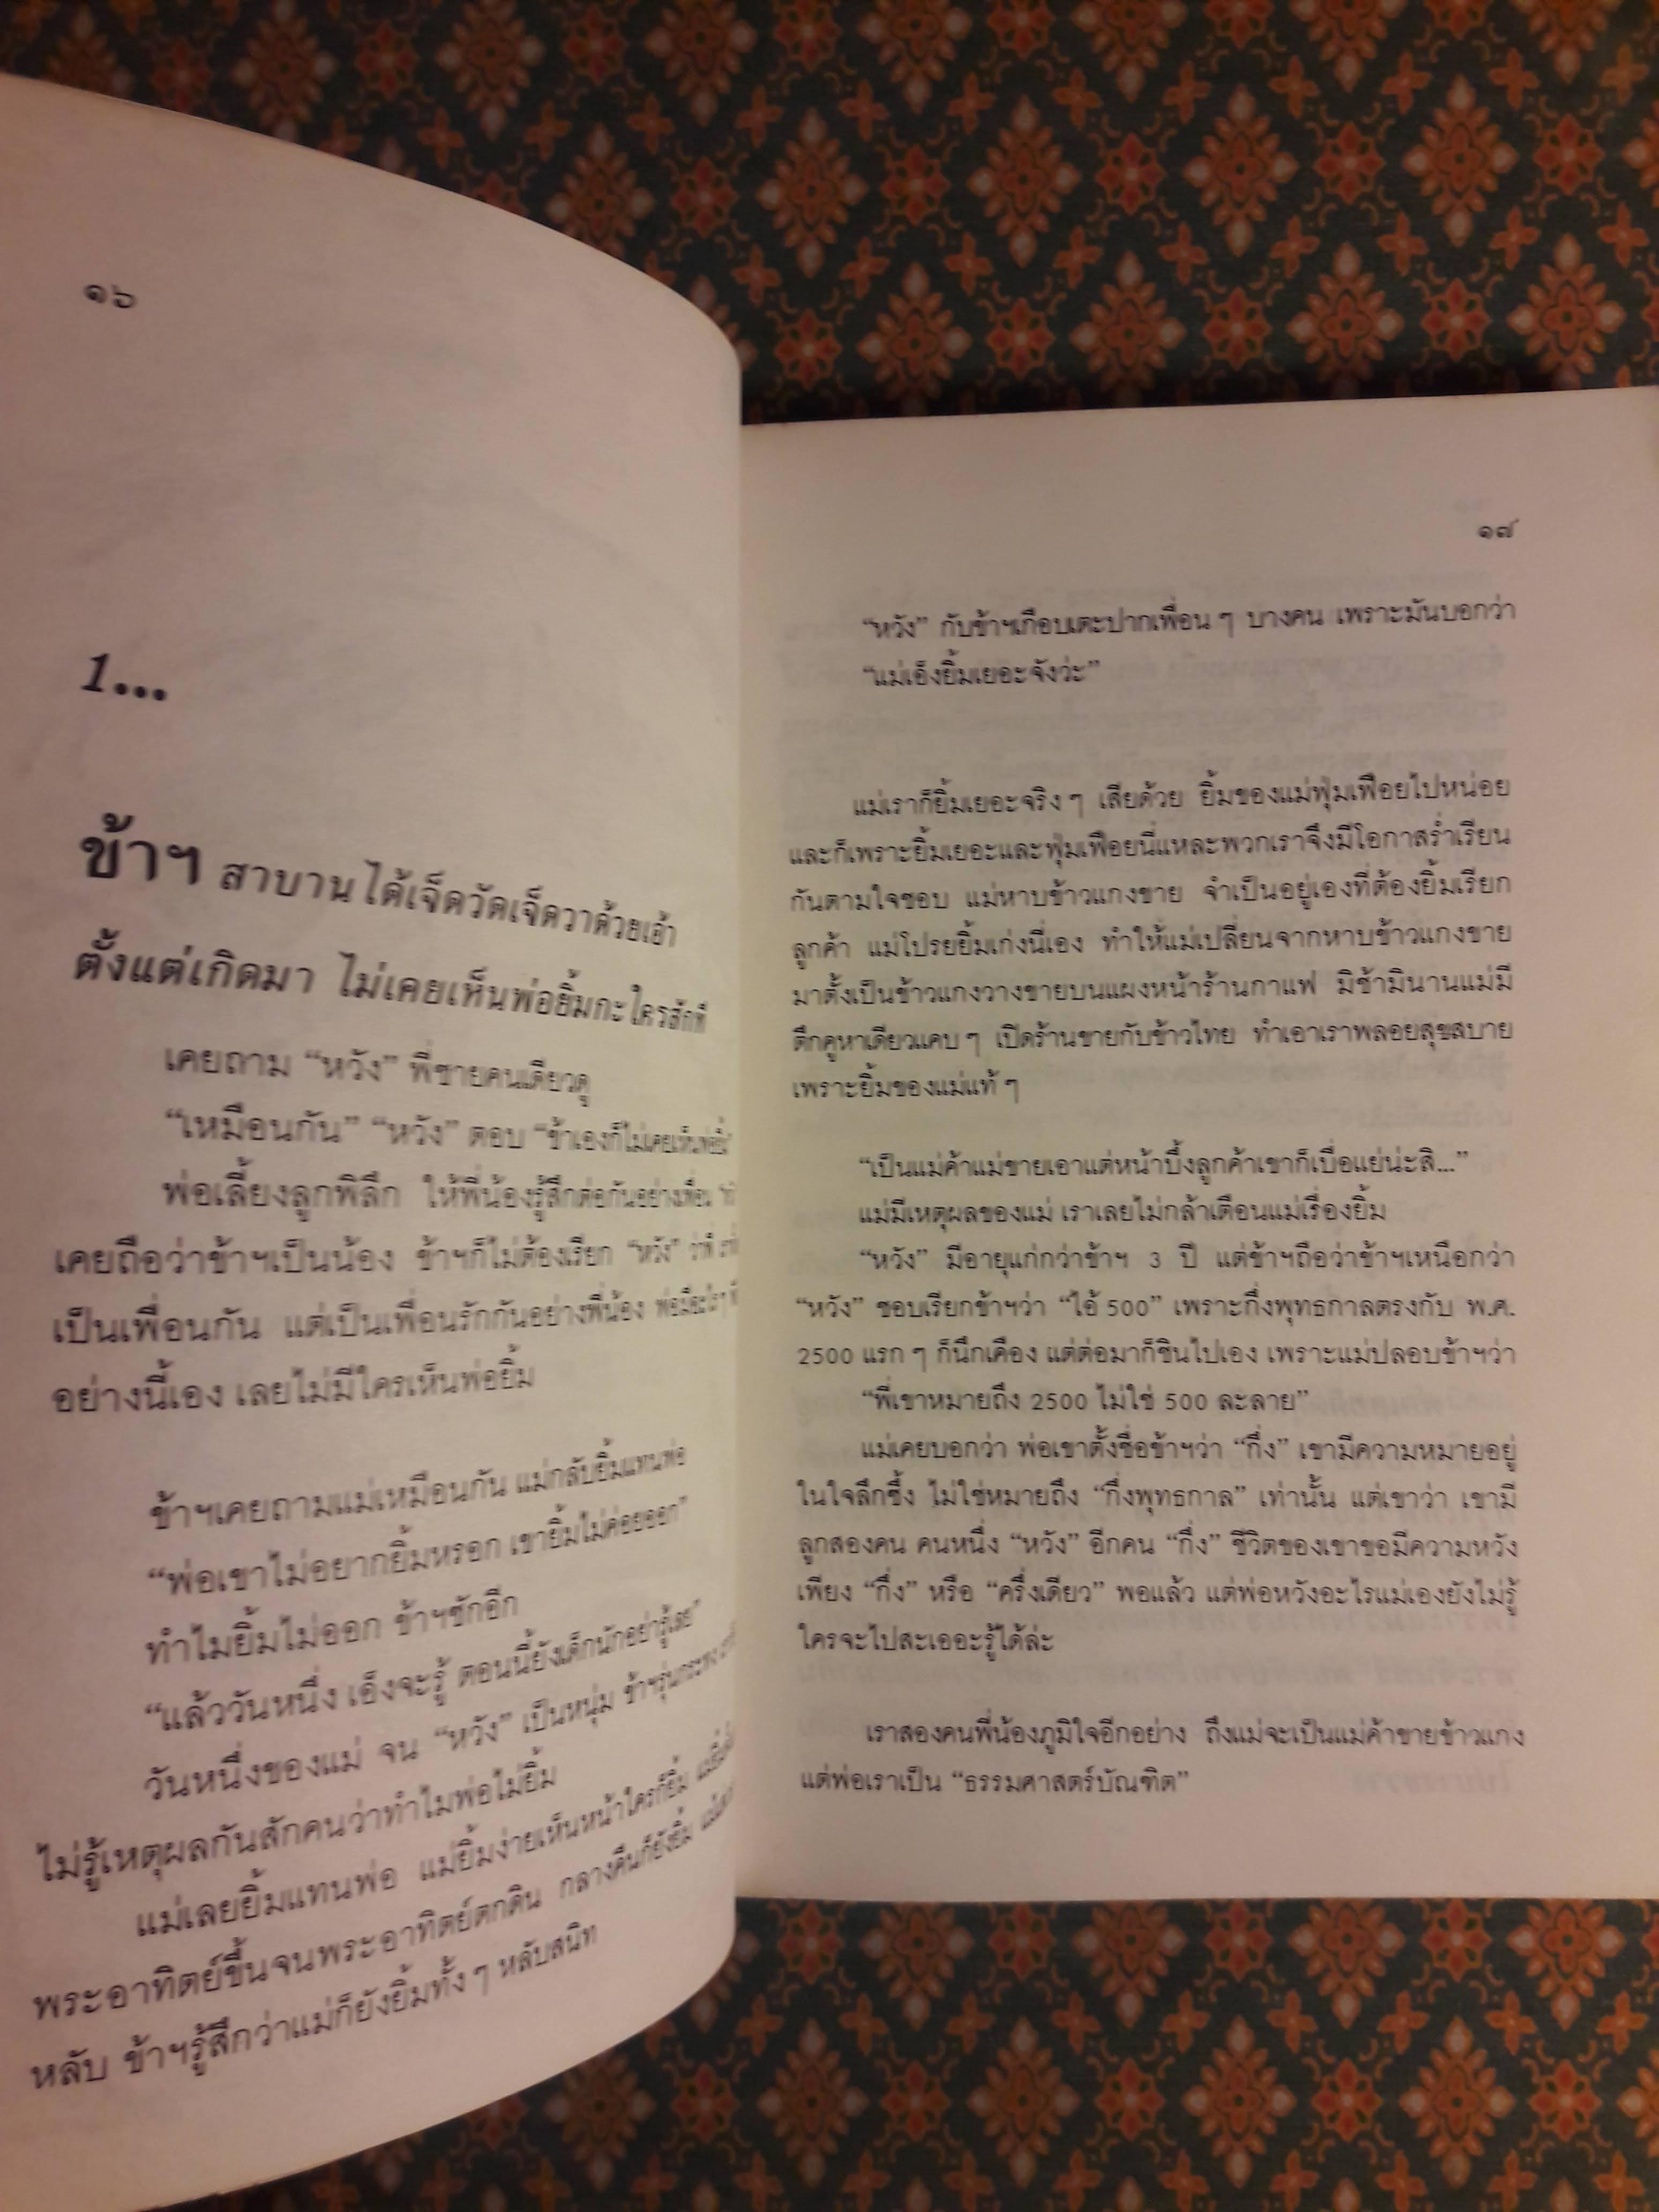 ๑๖
1...
ข้าฯ สาบานได้เจ็ดวัดเจ็ดวาด้วยเอ้า
ตั้งแต่เกิดมา ไม่เคยเห็นพ่อยิ้มกะใครสักที
เคยถาม “หวัง” พี่ชายคนเดียวดู
“เหมือนกัน” “หวัง” ตอบ “ข้าเองก็ไม่เคยเห็นพ่อยิ้ม”
พ่อเลี้ยงลูกพิลึก ให้พี่น้องรู้สึกต่อกันอย่างเพื่อน
เคยถือว่าข้าฯเป็นน้อง ข้าฯก็ไม่ต้องเรียก “หวัง” ว่าพี่
เป็นเพื่อนกัน แต่เป็นเพื่อนรักกันอย่างพี่น้อง พ่อมีอะไรๆ
อย่างนี้เอง เลยไม่มีใครเห็นพ่อยิ้ม
ข้าฯเคยถามแม่เหมือนกัน แม่กลับยิ้มแทนพ่อ
“พ่อเขาไม่อยากยิ้มหรอก เขายิ้มไม่ค่อยออก”
ทำไมยิ้มไม่ออก ข้าฯซักอีก
“แล้ววันหนึ่ง เอ็งจะรู้ ตอนนี้ยังเด็กนักอย่ารู้เลย”
วันหนึ่งของแม่ จน “หวัง” เป็นหนุ่ม ข้าฯรุ่นกระทง
ไม่รู้เหตุผลกันสักคนว่าทำไมพ่อไม่ยิ้ม
แม่เลยยิ้มแทนพ่อ แม่ยิ้มง่ายเห็นหน้าใครก็ยิ้ม
พระอาทิตย์ขึ้นจนพระอาทิตย์ตกดิน กลางคืนก็ยังยิ้ม
หลับ ข้าฯรู้สึกว่าแม่ก็ยังยิ้มทั้งๆ หลับสนิท
๑๗
“หวัง” กับข้าฯเกือบเตะปากเพื่อนๆ บางคน เพราะมันบอกว่า
“แม่เอ็งยิ้มเยอะจังว่ะ”
แม่เราก็ยิ้มเยอะจริงๆ เสียด้วย ยิ้มของแม่ฟุ่มเฟือยไปหน่อย
และก็เพราะยิ้มเยอะและฟุ่มเฟือยนี่แหละพวกเราจึงมีโอกาสร่ำเรียน
กันตามใจชอบ แม่หาบข้าวแกงขาย จำเป็นอยู่เองที่ต้องยิ้มเรียก
ลูกค้า แม่โปรยยิ้มเก่งนี่เอง ทำให้แม่เปลี่ยนจากหาบข้าวแกงขาย
มาตั้งเป็นข้าวแกงวางขายบนแผงหน้าร้านกาแฟ มิช้ามินานแม่มี
ตึกคูหาเดียวแคบๆ เปิดร้านขายกับข้าวไทย ทำเอาเราพลอยสุขสบาย
เพราะยิ้มของแม่แท้ๆ
“เป็นแม่ค้าแม่ขายเอาแต่หน้าบึ้งลูกค้าเขาก็เบื่อแย่น่ะสิ...”
แม่มีเหตุผลของแม่ เราเลยไม่กล้าเตือนแม่เรื่องยิ้ม
“หวัง” มีอายุแก่กว่าข้าฯ 3 ปี แต่ข้าฯถือว่าข้าฯเหนือกว่า
“หวัง” ชอบเรียกข้าฯว่า “ไอ้ 500” เพราะกึ่งพุทธกาลตรงกับ พ.ศ.
2500 แรกๆ ก็นึกเคือง แต่ต่อมาก็ชินไปเอง เพราะแม่ปลอบข้าฯว่า
“พี่เขาหมายถึง 2500 ไม่ใช่ 500 ละลาย”
แม่เคยบอกว่า พ่อเขาตั้งชื่อข้าฯว่า “กึ่ง” เขามีความหมายอยู่
ในใจลึกซึ้ง ไม่ใช่หมายถึง “กึ่งพุทธกาล” เท่านั้น แต่เขาว่า เขามี
ลูกสองคน คนหนึ่ง “หวัง” อีกคน “กึ่ง” ชีวิตของเขาขอมีความหวัง
เพียง “กึ่ง” หรือ “ครึ่งเดียว” พอแล้ว แต่พ่อหวังอะไรแม่เองยังไม่รู้
ใครจะไปสะเออะรู้ได้ล่ะ
เราสองคนพี่น้องภูมิใจอีกอย่าง ถึงแม่จะเป็นแม่ค้าขายข้าวแกง
แต่พ่อเราเป็น “ธรรมศาสตร์บัณฑิต”